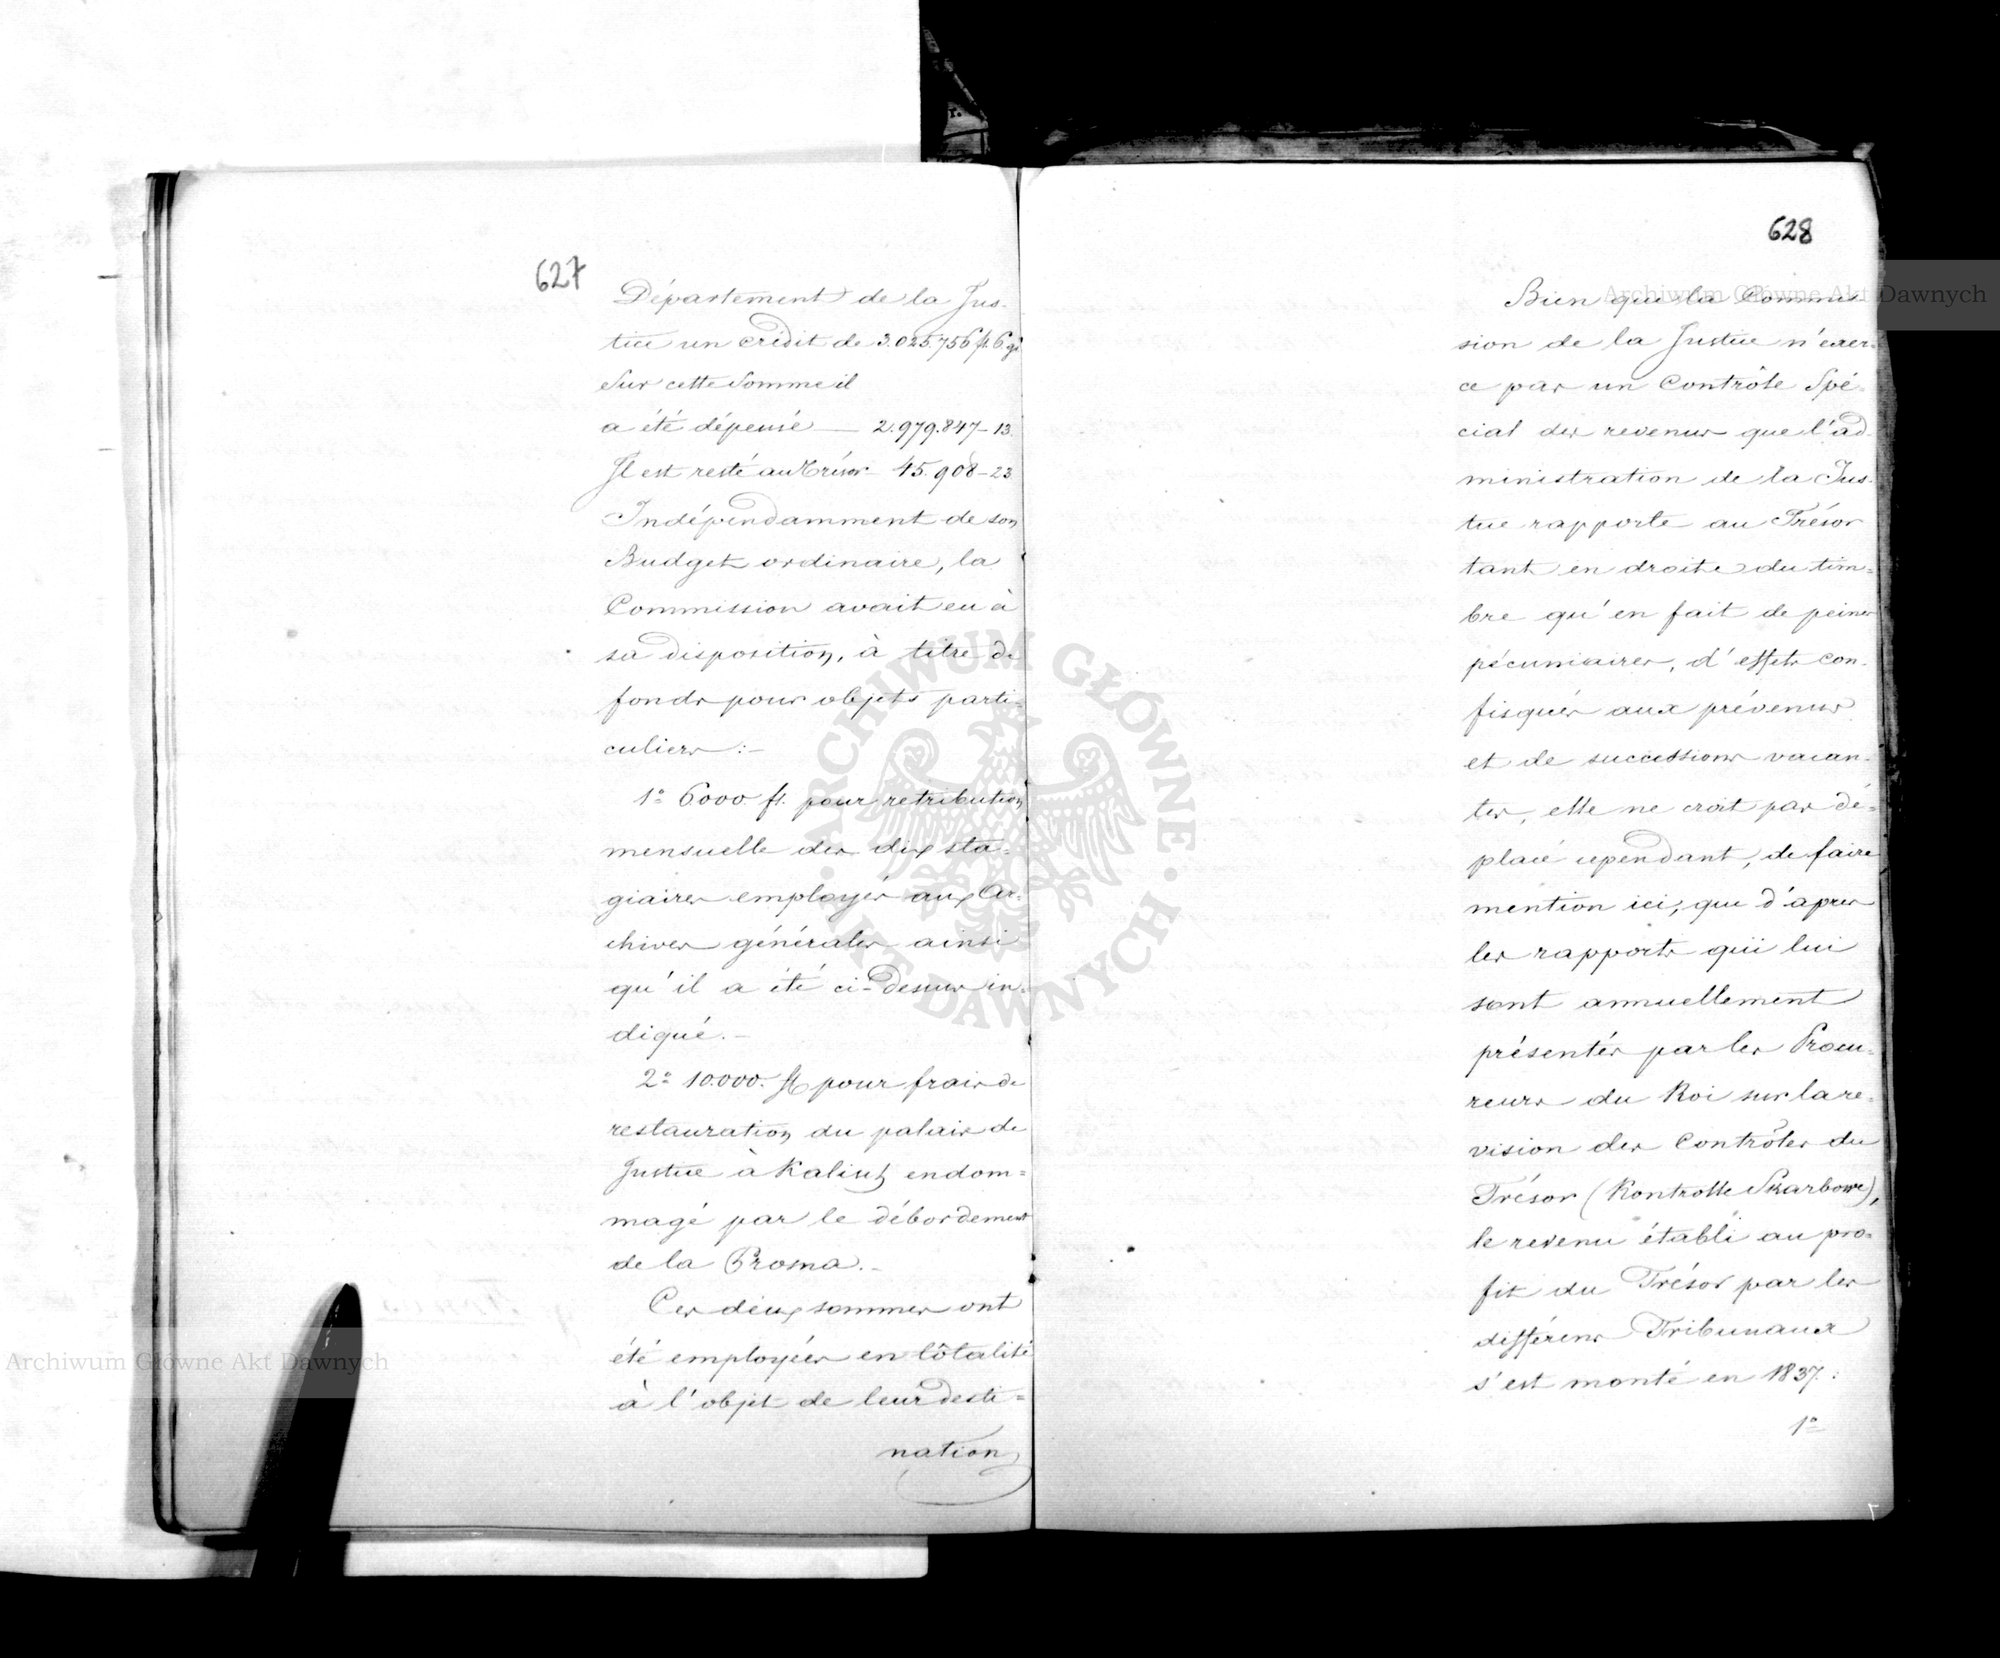 627
Département de la Jus-
tice un crédit de 3.025.756 fl. 6 gr
Sur cette Somme il
a été dépensé — 2.979.847-13.
Il est resté au Trésor - 45.908-23
Indépendamment de son
Budget ordinaire, la
Commission avait eu à
sa disposition, à titre de
fonds pour objets parti=
culiers :-
1° 6000. fl. pour retribution
mensuelle des dix sta-
giaires employés aux Ar-
chives générales ainsi
qu'il a été ci-dessus in-
diqué. -
2° 10.000. fl pour frais de
restauration du palais de
Justice à Kalisz endom=
magé par le débordement
de la Prosna. -
Ces deux sommes ont
été employées en tôtalité
à l'objet de leur desti=
nation
628
Bien que la Commis-
sion de la Justice n'exer-
ce pas un Contrôle Spé-
cial des revenus que l'ad-
ministration de la Jus-
tice rapporte au Trésor
tant en droits du tim-
bre qu'en fait de peines
pécuniaires, d'effets con-
fisqués aux prévenus
et de successions vacan-
tes, elle ne croit pas dé-
placé cependant, de faire
mention ici, que d'après
les rapports qui lui
sont annuellement
présentés par les Procu-
reurs du Roi sur la re-
vision des Contrôles du
Trésor (Kontrolle Skarbowe),
le revenu établi au pro=
fit du Trésor par les
différens Tribunaux
s'est monté en 1837 :
1°
Archiwum Główne Akt Dawnych
Archiwum Główne Akt Dawnych
ARCHIWUM GŁÓWNE · AKT DAWNYCH ·